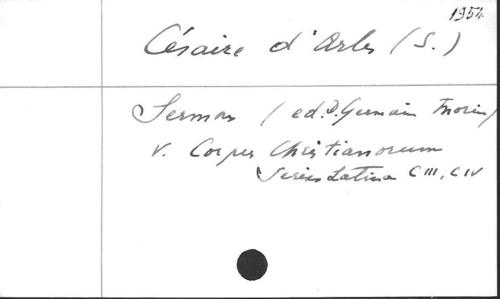 1954
Césaire d'Arles (S.)
Sermons (ed. D. Germain Morin)
v. Corpus Christianorum
Series Latina CIII, CIV